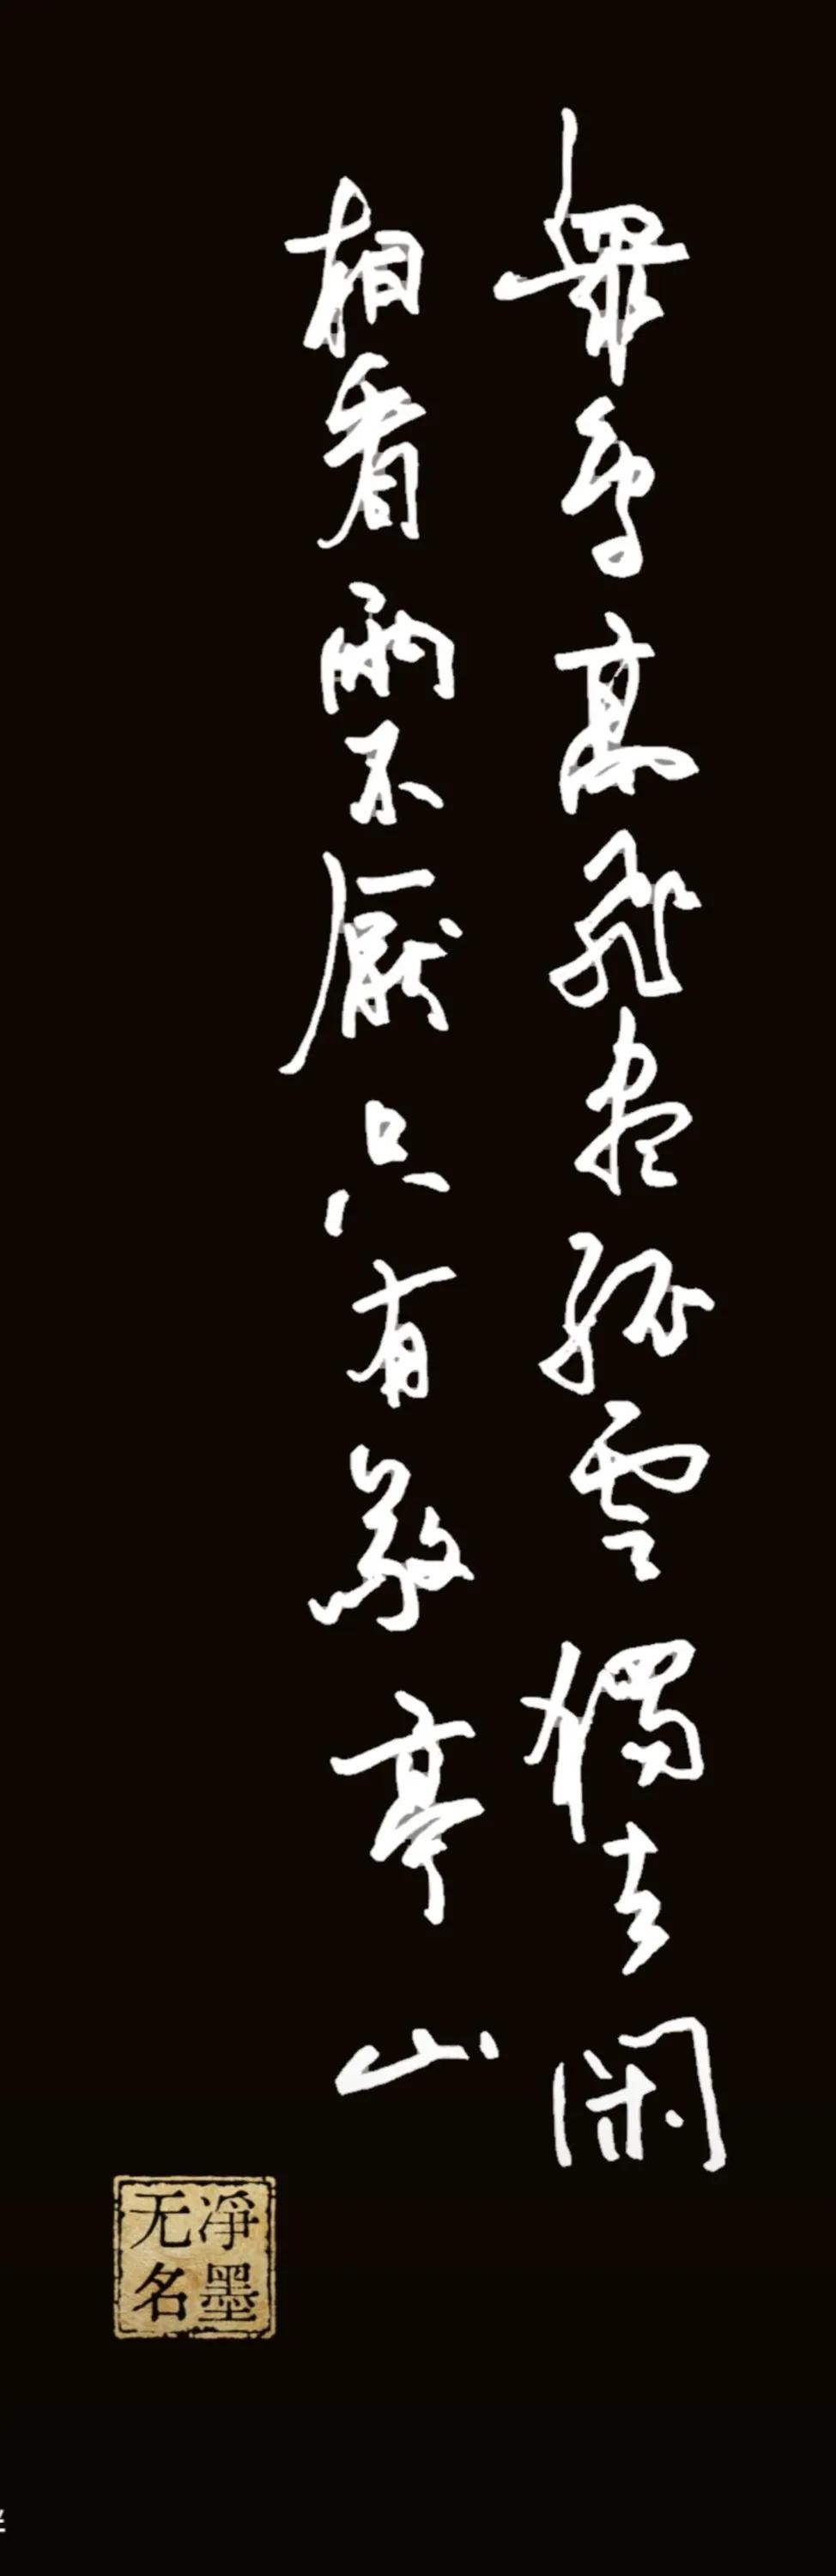 眾鳥高飛盡孤雲獨去閑
相看兩不厭只有敬亭山
凈墨
无名